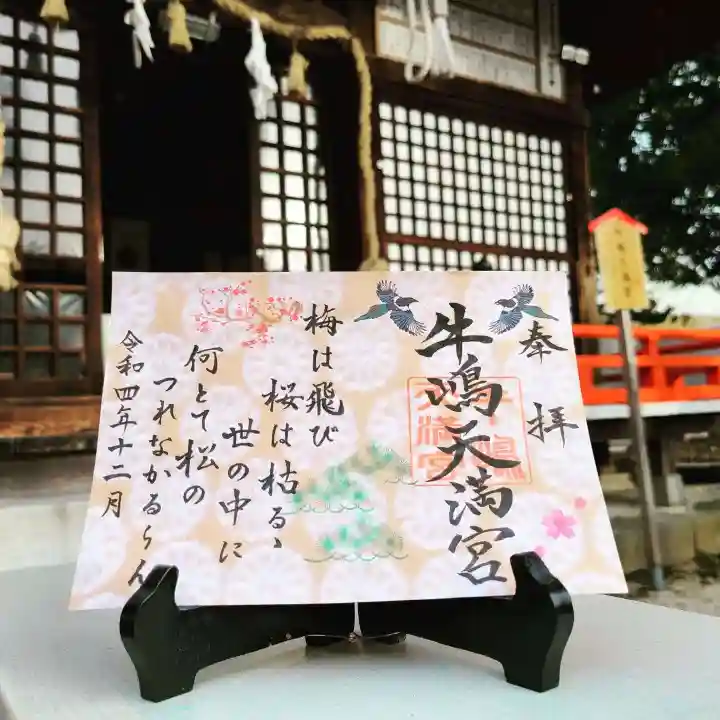 奉拝
牛嶋天満宮
牛嶋天満宮
梅は飛び
桜は枯るゝ
世の中に
何とて松の
つれなかるらん
令和四年十二月